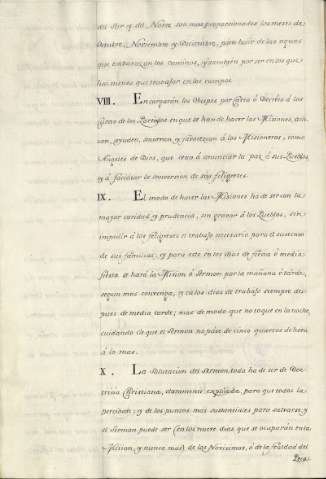 del Sur y del Norte son mas proporcionados los meses de
Octubre, Noviembre y Diciembre, para huir de las aguas
que embarazan los caminos, y tambien por ser en los que
hai menos que trabajar en los campos.
VIII. Encargarán los Obispos por Carta ó Decreto á los
Curas de los Partidos en que se han de hacer las Misiones,
ayuden, y favorezcan á los Misioneros, como
Angeles de Dios, que van á anunciar la paz á sus Pueblos,
y á facilitar la conversion de sus feligreses.
IX. El modo de hacer las Misiones ha de ser con la
mayor caridad y prudencia, sin gravar á los Pueblos, sin
impedir á los feligreses el trabajo necesario para el sustento
de sus familias, y para esto en los dias de fiesta ó media
fiesta se hará la Mision ó Sermon por la mañana ó tarde,
segun mas convenga, y en los dias de trabajo siempre des-
pues de media tarde; mas de modo que no toque en la noche,
cuidando de que el Sermon no pase de cinco quartos de hora
á lo mas.
X. La del Sermon toda ha de ser de Doc-
trina Christiana, explicada, para que todos la
perciban; y de los puntos mas sustanciales para salvarse, y
el Sermon puede ser (en los nueve dias que se ocupare cada
Mision, y nunca mas) de los Novisimos, ó de la fealdad del
Peca-